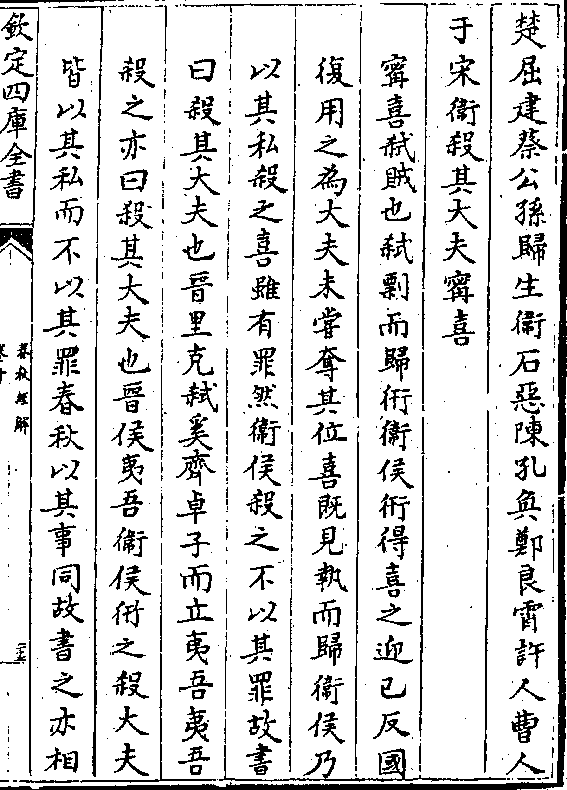 楚屈建蔡公孫歸生衛石惡陳孔奐鄭良霄許人曹人
于宋衛殺其大夫甯喜
甯喜弑賊也弑剽而歸衎衛侯衎得喜之迎已反國
復用之為大夫未嘗奪其位喜既見執而歸衛侯乃
以其私殺之喜雖有罪然衛侯殺之不以其罪故書
曰殺其大夫也晉里克弑奚齊卓子而立夷吾夷吾
殺之亦曰殺其大夫也晉侯夷吾衛侯衎之殺大夫
皆以其私而不以其罪春秋以其事同故書之亦相
欽定四庫全書
春秋經解